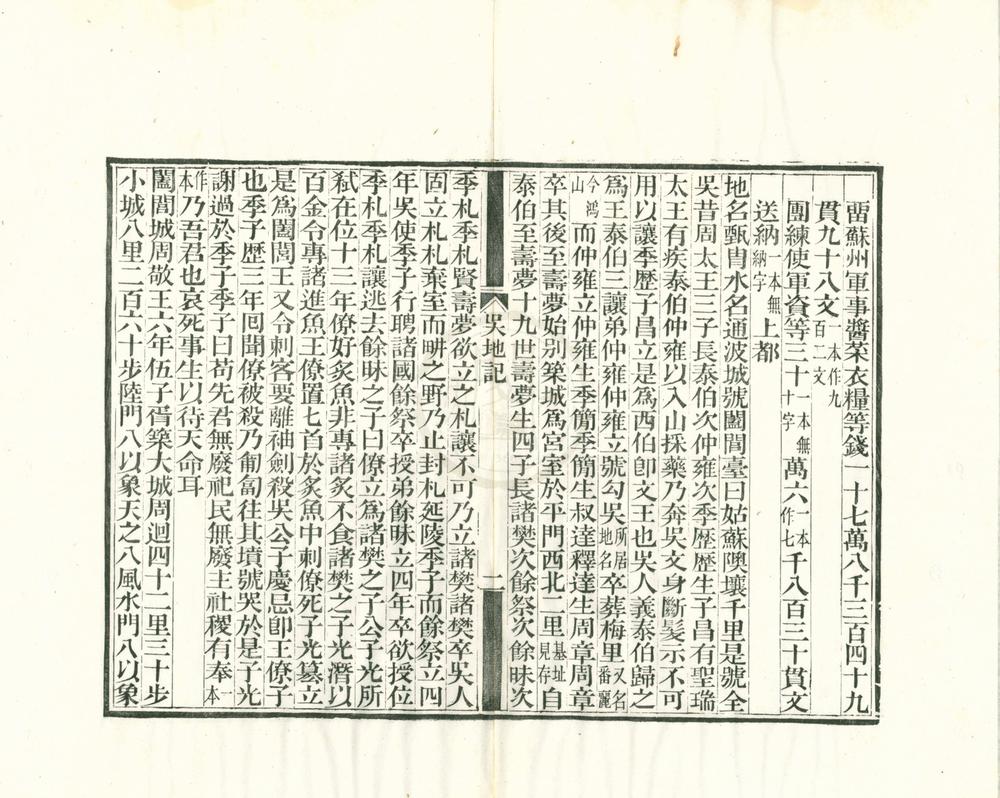 畱蘇州軍事醬菜衣糧等錢一十七萬八千三百四十九
貫九十八文一本作九百二文
團練使軍資等三十一本無十字萬六一本作七千八百三十貫文
送納一本無納字上都
地名甄冑水名通波城號闔閭臺曰姑蘇隩壤千里是號全
吳昔周太王三子長泰伯次仲雍次季歷歷生子昌有聖瑞
太王有疾泰伯仲雍以入山採藥乃奔吳文身斷髮示不可
用以讓季歷子昌立是爲西伯卽文王也吳人義泰伯歸之
爲王泰伯三讓弟仲雍仲雍立號勾吳所居地名卒葬梅里又名番麗
今鴻山而仲雍立仲雍生季簡季簡生叔達釋達生周章周章
卒其後至壽夢始别築城爲宮室於平門西北二里墓址見存自
泰伯至壽夢十九世壽夢生四子長諸樊次餘祭次餘昧次
吳地記
二
季札季札賢壽夢欲立之札讓不可乃立諸樊諸樊卒吳人
固立札札棄室而畊之野乃止封札延陵季子而餘祭立四
年吳使季子行聘諸國餘祭卒授弟餘昧立四年卒欲授位
季札季札讓逃去餘昧之子曰僚立爲諸樊之子公子光所
弒在位十三年僚好炙魚非專諸炙不食諸樊之子光潛以
百金令專諸進魚王僚置匕首於炙魚中刺僚死子光墓立
是爲闔閭王又令刺客要離袖劍殺吳公子慶忌卽王僚子
也季子歷三年囘聞僚被殺乃匍匐往其墳號哭於是子光
謝過於季子季子曰苟先君無廢祀民無廢主社稷有奉一本
作本乃吾君也哀死事生以待天命耳
闔閭城周敬王六年伍子胥築大城周迴四十二里三十步
小城八里二百六十步陸門八以象天之八風水門八以象